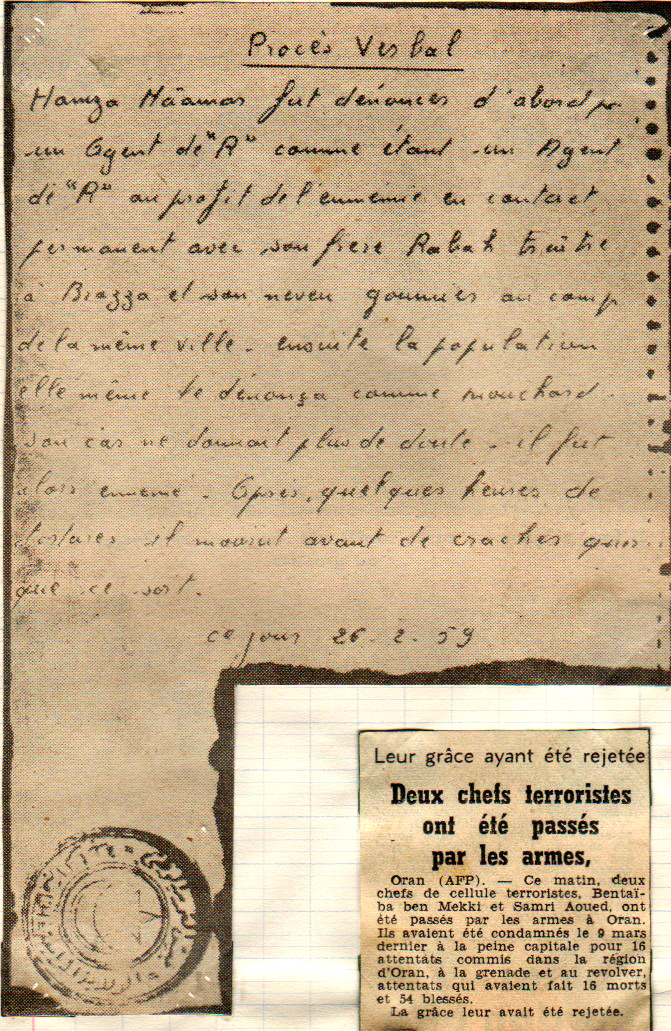 Procès Verbal
Hamza Māamar fut dénoncer d'abord par
un Agent de "R" comme étant un Agent
de "R" au profit de l'ennemie en contact
permanent avec son frere Rabah traitre
à Brazza et son neveu goumier au camp
de la même ville. ensuite la population
elle même le dénonça comme mouchard.
Son cas ne donnait plus de doute. il fut
alors enmené. Après, quelques heures de
tortures il mourut avant de cracher quoi
que ce soit.
ce jour 26-2-59
Leur grâce ayant été rejetée
Deux chefs terroristes
ont été passés
par les armes,
Oran (AFP). — Ce matin, deux
chefs de cellule terroristes, Bentaï-
ba ben Mekki et Samri Aoued, ont
été passés par les armes à Oran.
Ils avaient été condamnés le 9 mars
dernier à la peine capitale pour 16
attentats commis dans la région
d'Oran, à la grenade et au revolver,
attentats qui avaient fait 16 morts
et 54 blessés.
La grâce leur avait été rejetée.